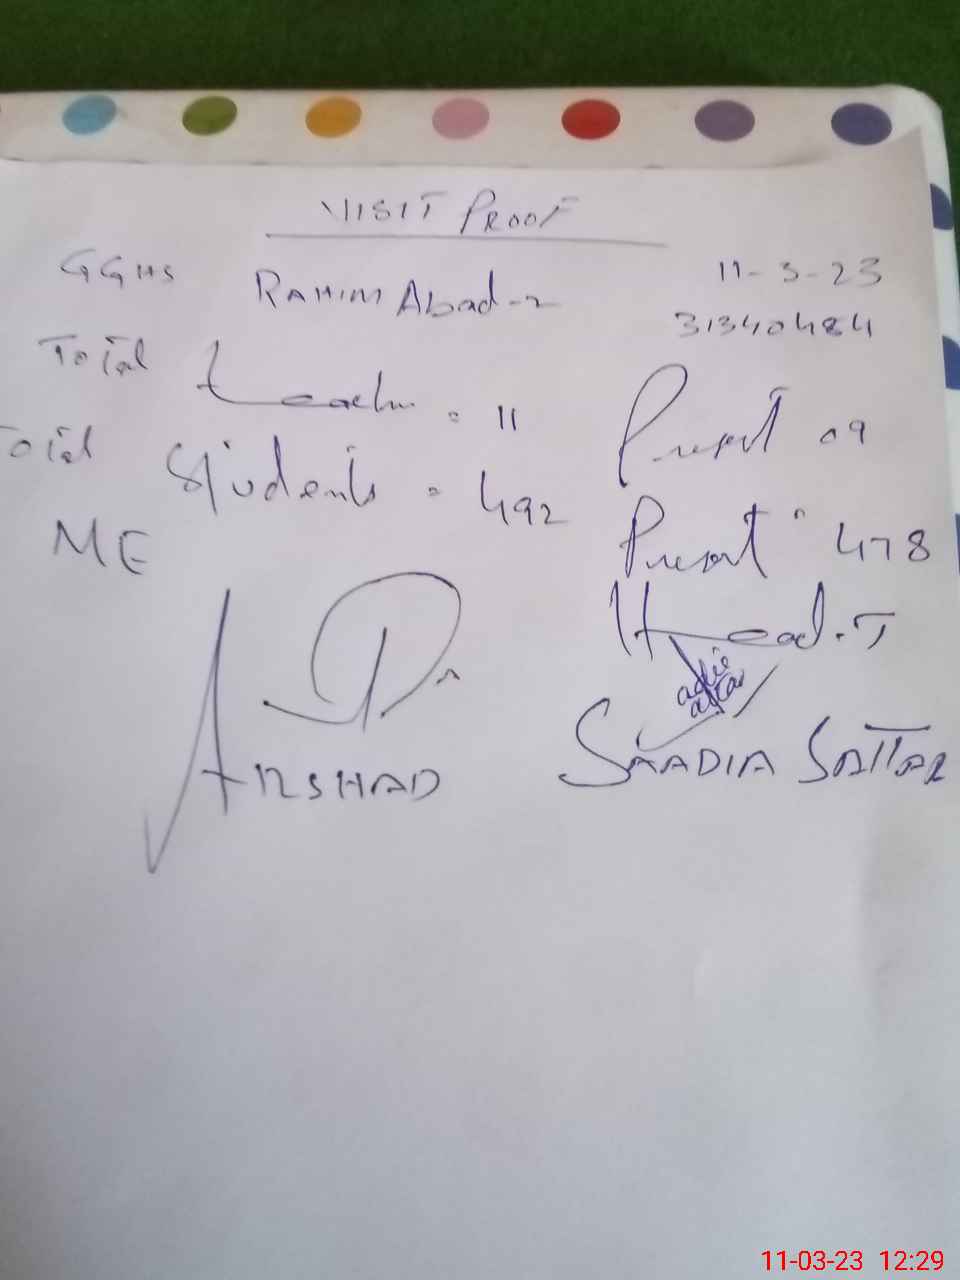 VISIT PROOF
GGHS RAHIM Abad-2 11-3-23
31340484
Total teacher = 11 Present 09
Total Students = 492 Present 478
ME Head.T
ARSHAD SAADIA SATTAR
11-03-23 12:29